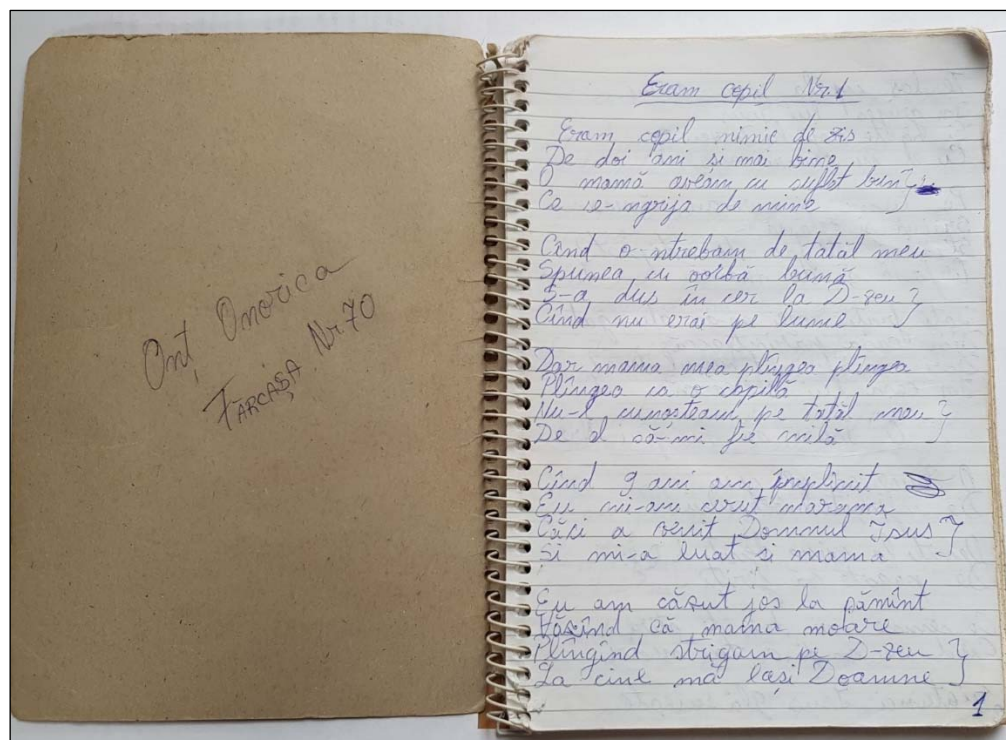 Onț Onorica
FĂRCAȘA Nr. 70
Eram copil Nr. 1
Eram copil nimic de zis
De doi ani si mai bine
O mamă aveam cu suflet bun
Ce se-ngrija de mine
Cand o-ntrebam de tatăl meu
Spunea cu vorbă bună
S-a dus în cer la D-zeu
Cînd nu erai pe lume
Dar mama mea plîngea plîngea
Plîngea ca o copilă
Nu-l cunoșteam pe tatăl meu
De el să-mi fie milă
Cînd 9 ani am împlinit
Eu mi-am cerut marama
Căci a venit Domnul Isus
Si mi-a luat si mama
Eu am căzut jos la pămînt
Văzînd că mama moare
Plîngînd strigam pe D-zeu
La cine mă lași Doamne
1